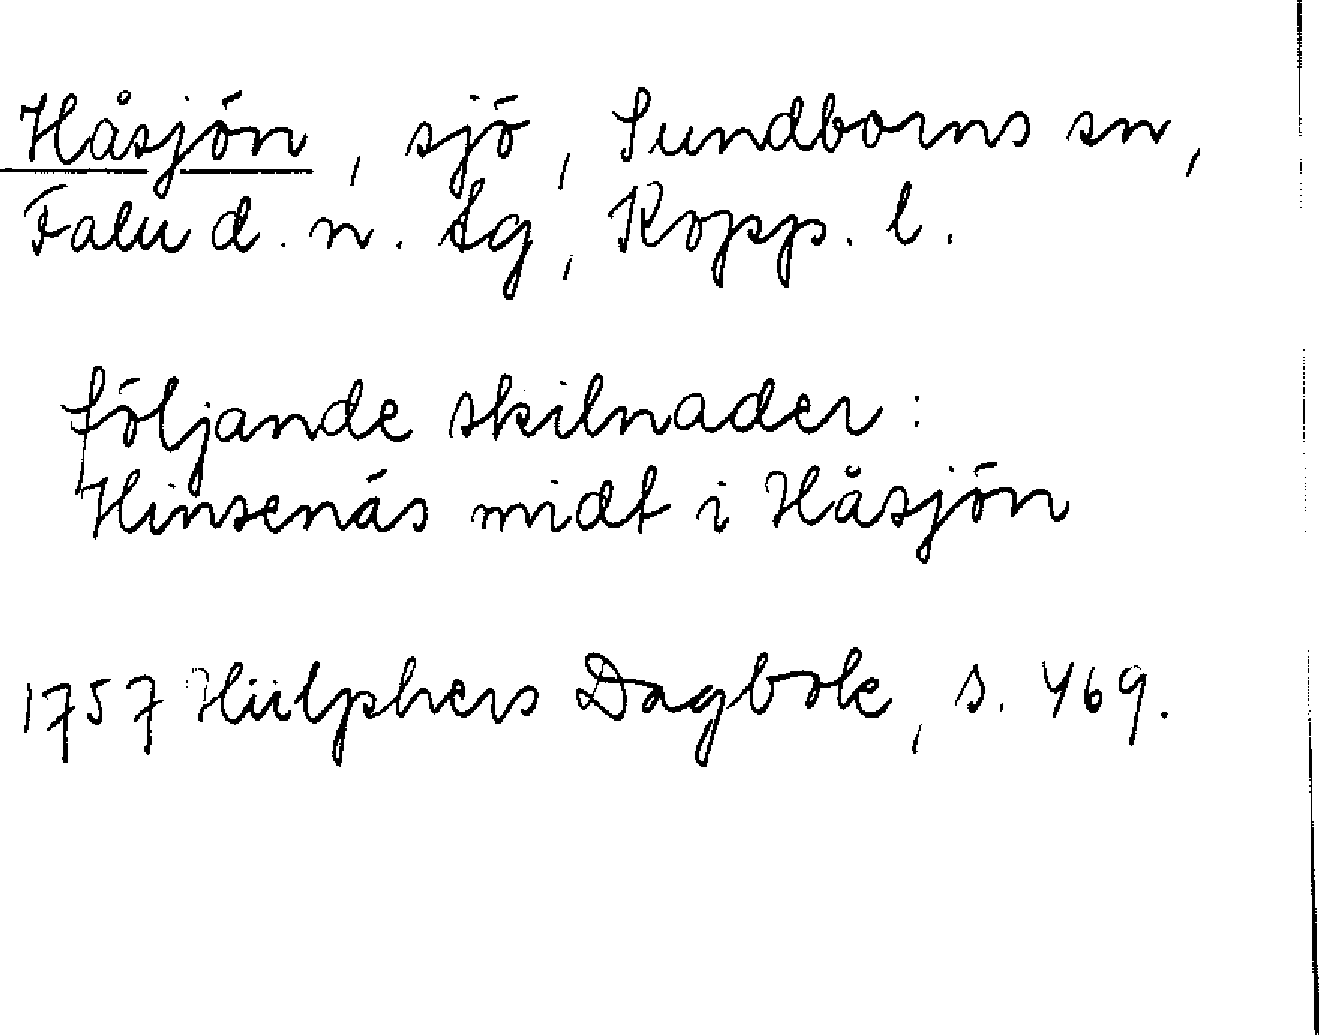 Håsjön, sjö, Sundborns sn,
Falu d. n. tg, Kopp. l.
följande skilnader:
Hinsenäs midt i Håsjön
1757 Hülphers Dagbok, s. 469.